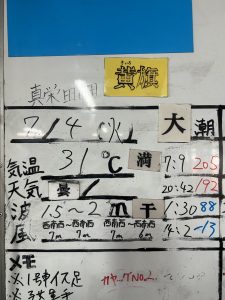 黄旗
真栄田岬
7/4(火) 大潮
気温 31℃ 満 7:9 205
天気 曇 20:42 192
波 1.5~2m 干 1:30 88
風 西南西 西南西 西南西 西南西 14:2 -13
7m 7m 7m 6m
メモ
※1号車イス足